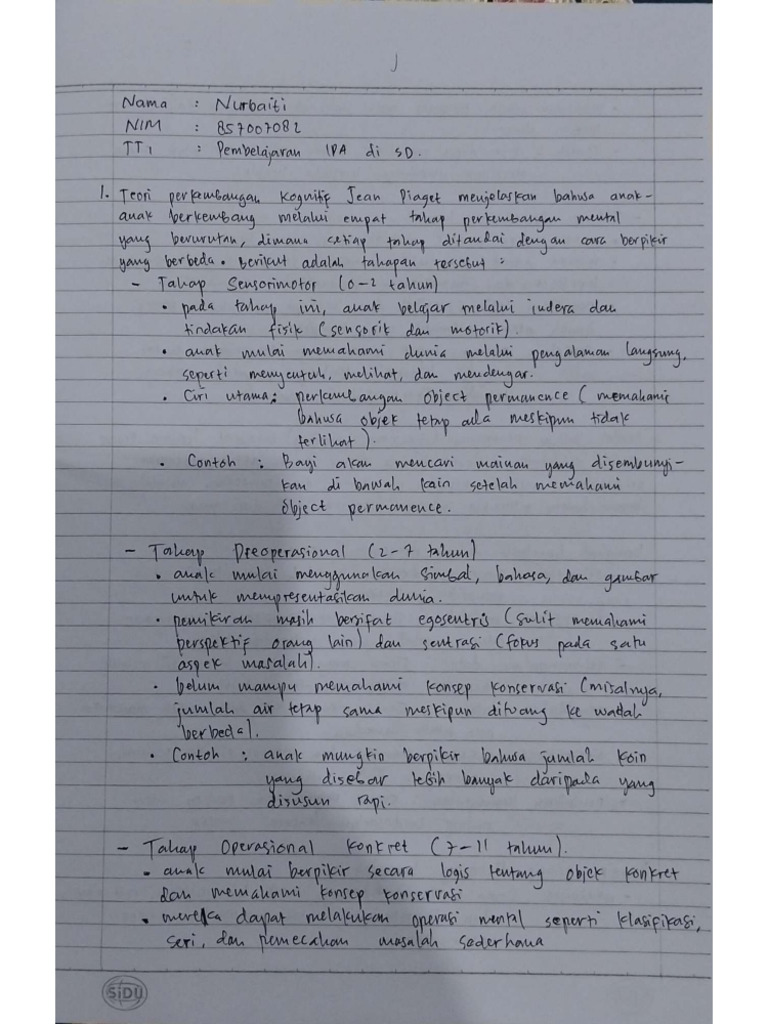 Nama : Nurbaiti
NIM : 857007082
TT1 : Pembelajaran IPA di SD.
1. Teori perkembangan Kognitif Jean Piaget menjelaskan bahwa anak-
anak berkembang melalui empat tahap perkembangan mental
yang berurutan, dimana setiap tahap ditandai dengan cara berpikir
yang berbeda. Berikut adalah tahapan tersebut :
- Tahap Sensorimotor (0-2 tahun)
• pada tahap ini, anak belajar melalui indera dan
tindakan fisik (sensorik dan motorik).
• anak mulai memahami dunia melalui pengalaman langsung,
seperti menyentuh, melihat, dan mendengar.
• Ciri utama : perkembangan object permanence (memahami
bahwa objek tetap ada meskipun tidak
terlihat).
• Contoh : Bayi akan mencari mainan yang disembunyi-
kan di bawah kain setelah memahami
object permanence.
- Tahap Preoperasional (2-7 tahun)
• anak mulai menggunakan simbal, bahasa, dan gambar
untuk mempresentasikan dunia.
• pemikiran masih bersifat egosentris (sulit memahami
perspektif orang lain) dan sentrasi (fokus pada satu
aspek masalah).
• belum mampu memahami konsep konservasi (misalnya,
jumlah air tetap sama meskipun dituang ke wadah
berbeda).
• Contoh : anak mungkin berpikir bahwa jumlah koin
yang disebar lebih banyak daripada yang
disusun rapi.
- Tahap Operasional konkret (7-11 tahun).
• anak mulai berpikir secara logis tentang objek konkret
dan memahami konsep konservasi
• mereka dapat melakukan operasi mental seperti klasifikasi,
seri, dan pemecahan masalah sederhana
SiDU